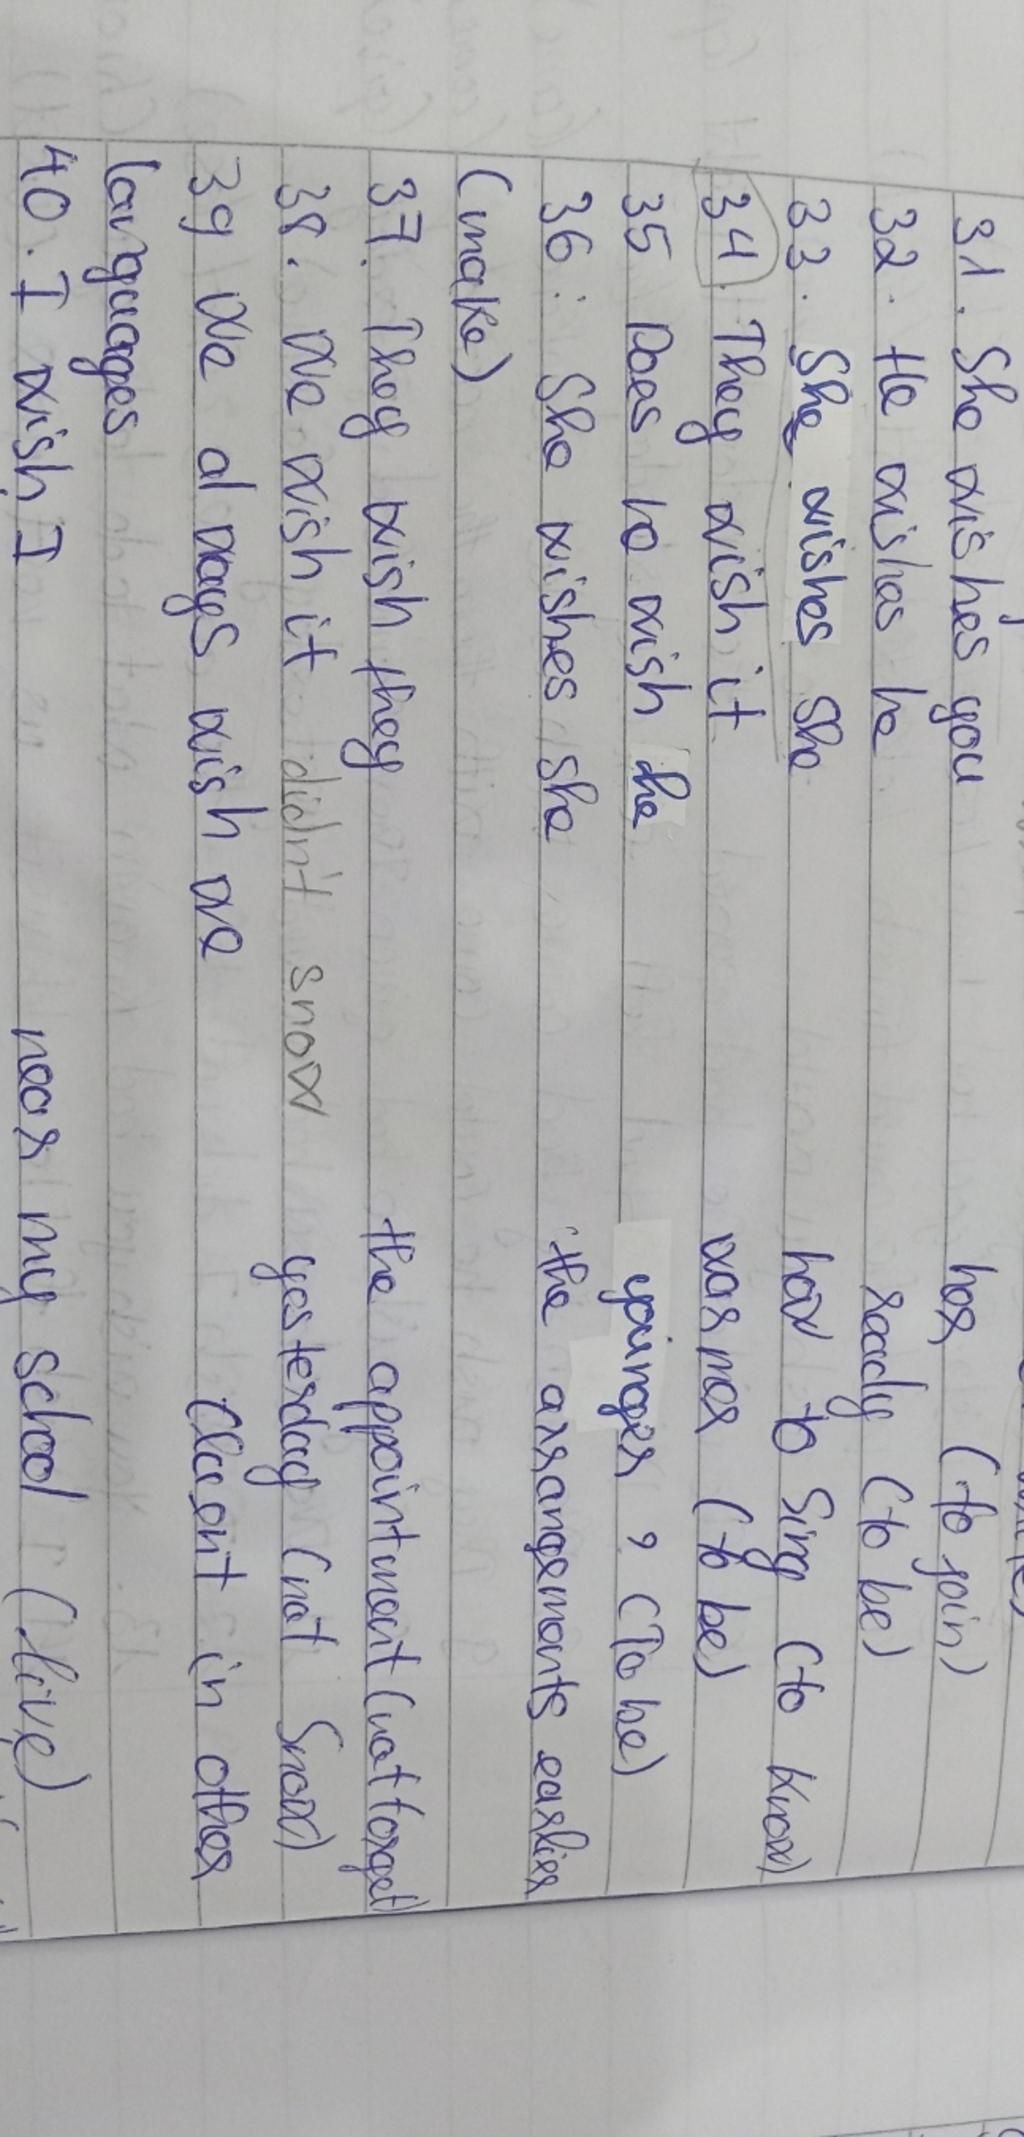 31. She wishes you her (to join)
32. He wishes he ready (to be)
33. She wishes she how to sing (to know)
34. They wish it warmer (to be)
35 Does to wish he younger, (To be)
36: She wishes she the arrangements earlier
(make)
37. They wish they the appointment (not forget)
38. We wish it didn't snow yesterday (not snow)
39 We always wish we fluent in other
languages
40. I wish I near my school (live)